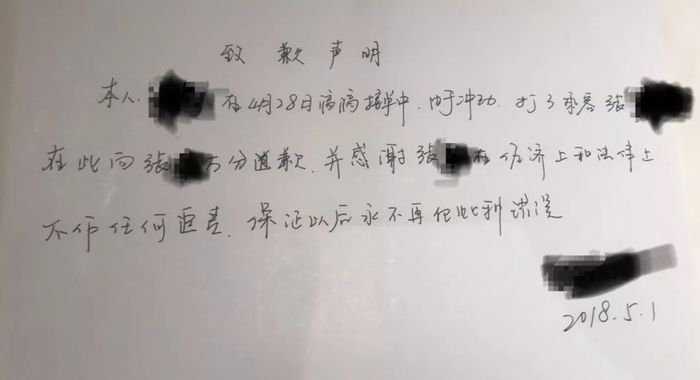 致歉声明
本人 在4月28日滴滴接单中,由于冲动,打了乘客张
在此向张 万分道歉,并感谢张 在经济上和法律上
不作任何追责,保证以后永不再犯此利错误
2018.5.1